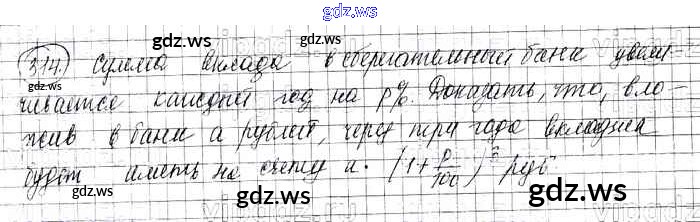 gdz.ws
gdz.ws gdz.ws
314. Сумма вклада в сберегательный банк увели-
gdz.ws
чивается каждый год на p%. Доказать, что, вло-
gdz.ws
жив в банк a рублей, через три года вкладчик
будет иметь на счету a·(1+p/100)³ руб
gdz.ws gdz.ws
gdz.ws